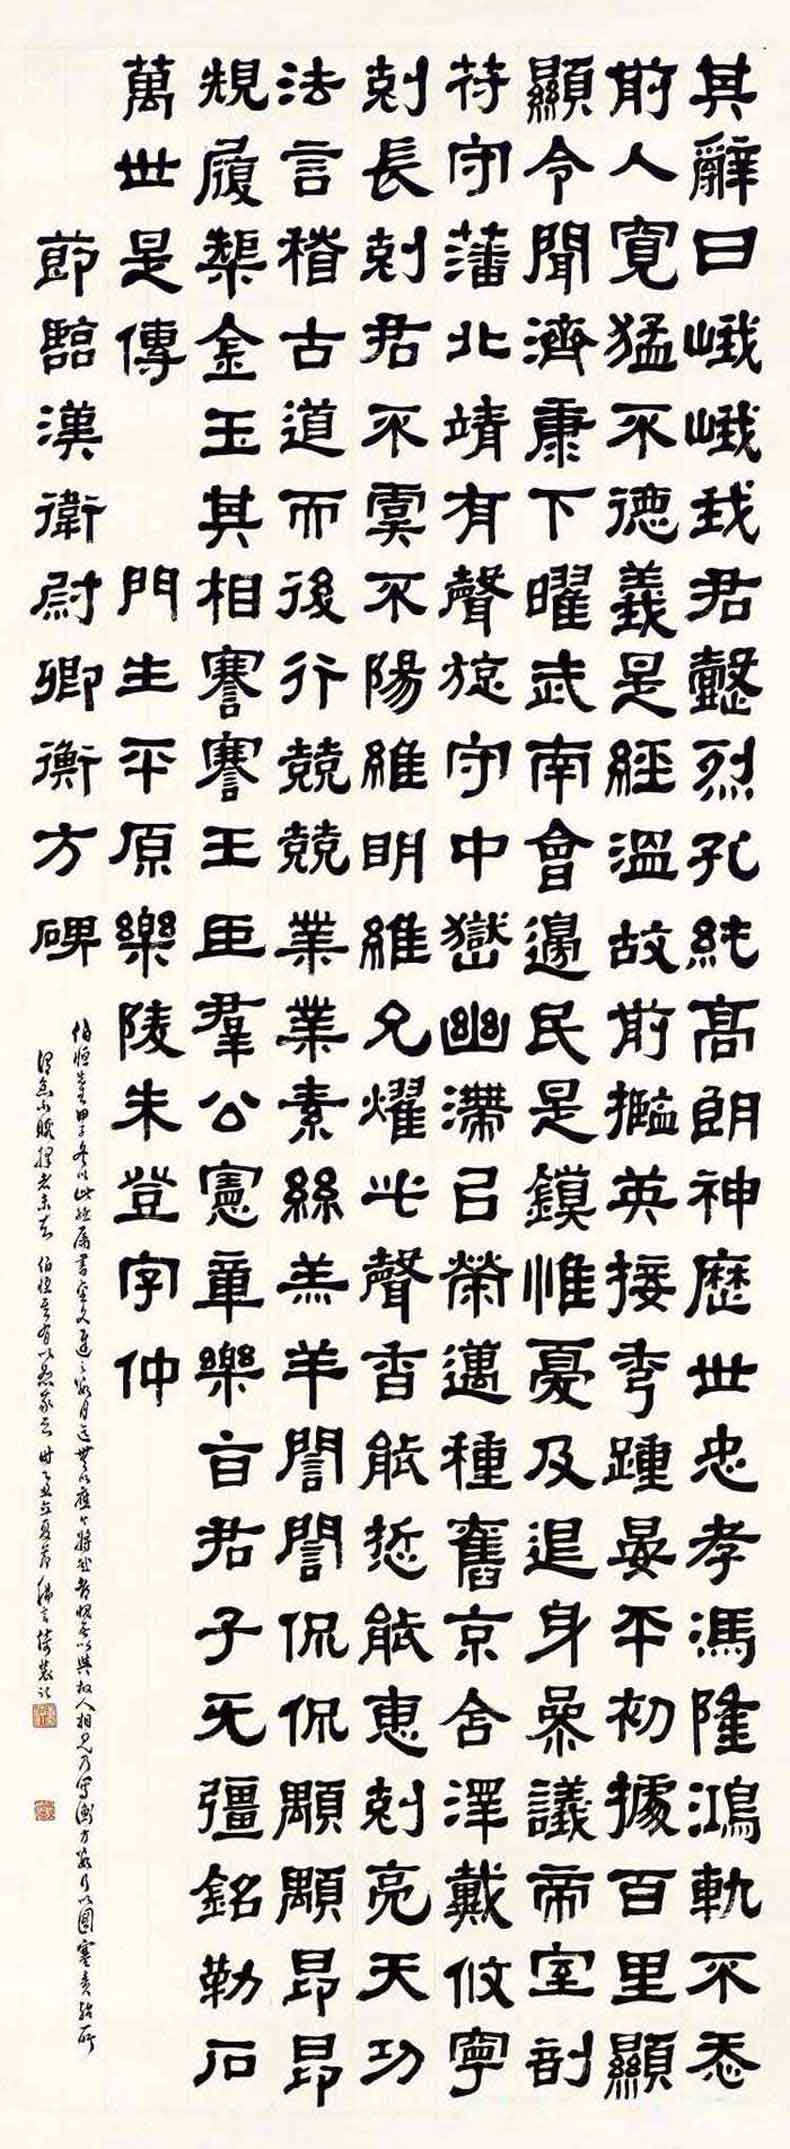 其辭曰峨峨我君懿烈孔純高朗神歷世忠孝馮隆鴻軌不忝
前人寬猛不德義是經溫故前摡英接秀踵晏平初據百里顯
顯令聞濟康下曜武南會邊民是鏌惟憂及退身參議帝室剖
符守藩北靖有聲旋守中嶽幽滯以榮邁種舊京舍澤戴攸寧
剋長剋君不虞不陽維明維允燿此聲香能悊能惠剋亮天功
法言稽古道而後行兢兢業業素絲羔羊誾誾侃侃顒顒昂昂
規履槼金玉其相謇謇王臣羣公憲章樂旨君子旡彊銘勒石
萬世是傳 門生平原樂陵朱登字仲
節臨漢衛尉卿衡方碑